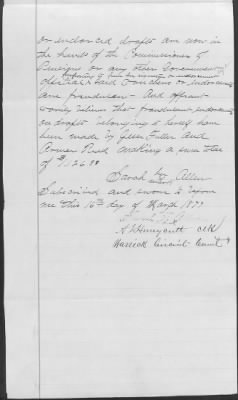 or endorsed drafts are now in
the hands of the Commissioner of
Pensions or any other Government
official said vouchers or endorsements
are fraudulent - And affiant
verily believes that fraudulent endorsements
on drafts belonging to herself have
been made by Green Fuller and
Reed making a sum total
of $126
Sarah Allen
Subscribed and sworn to before
me this 16th day of March 1877
Honeycutt Clk
Warrick Circuit Court